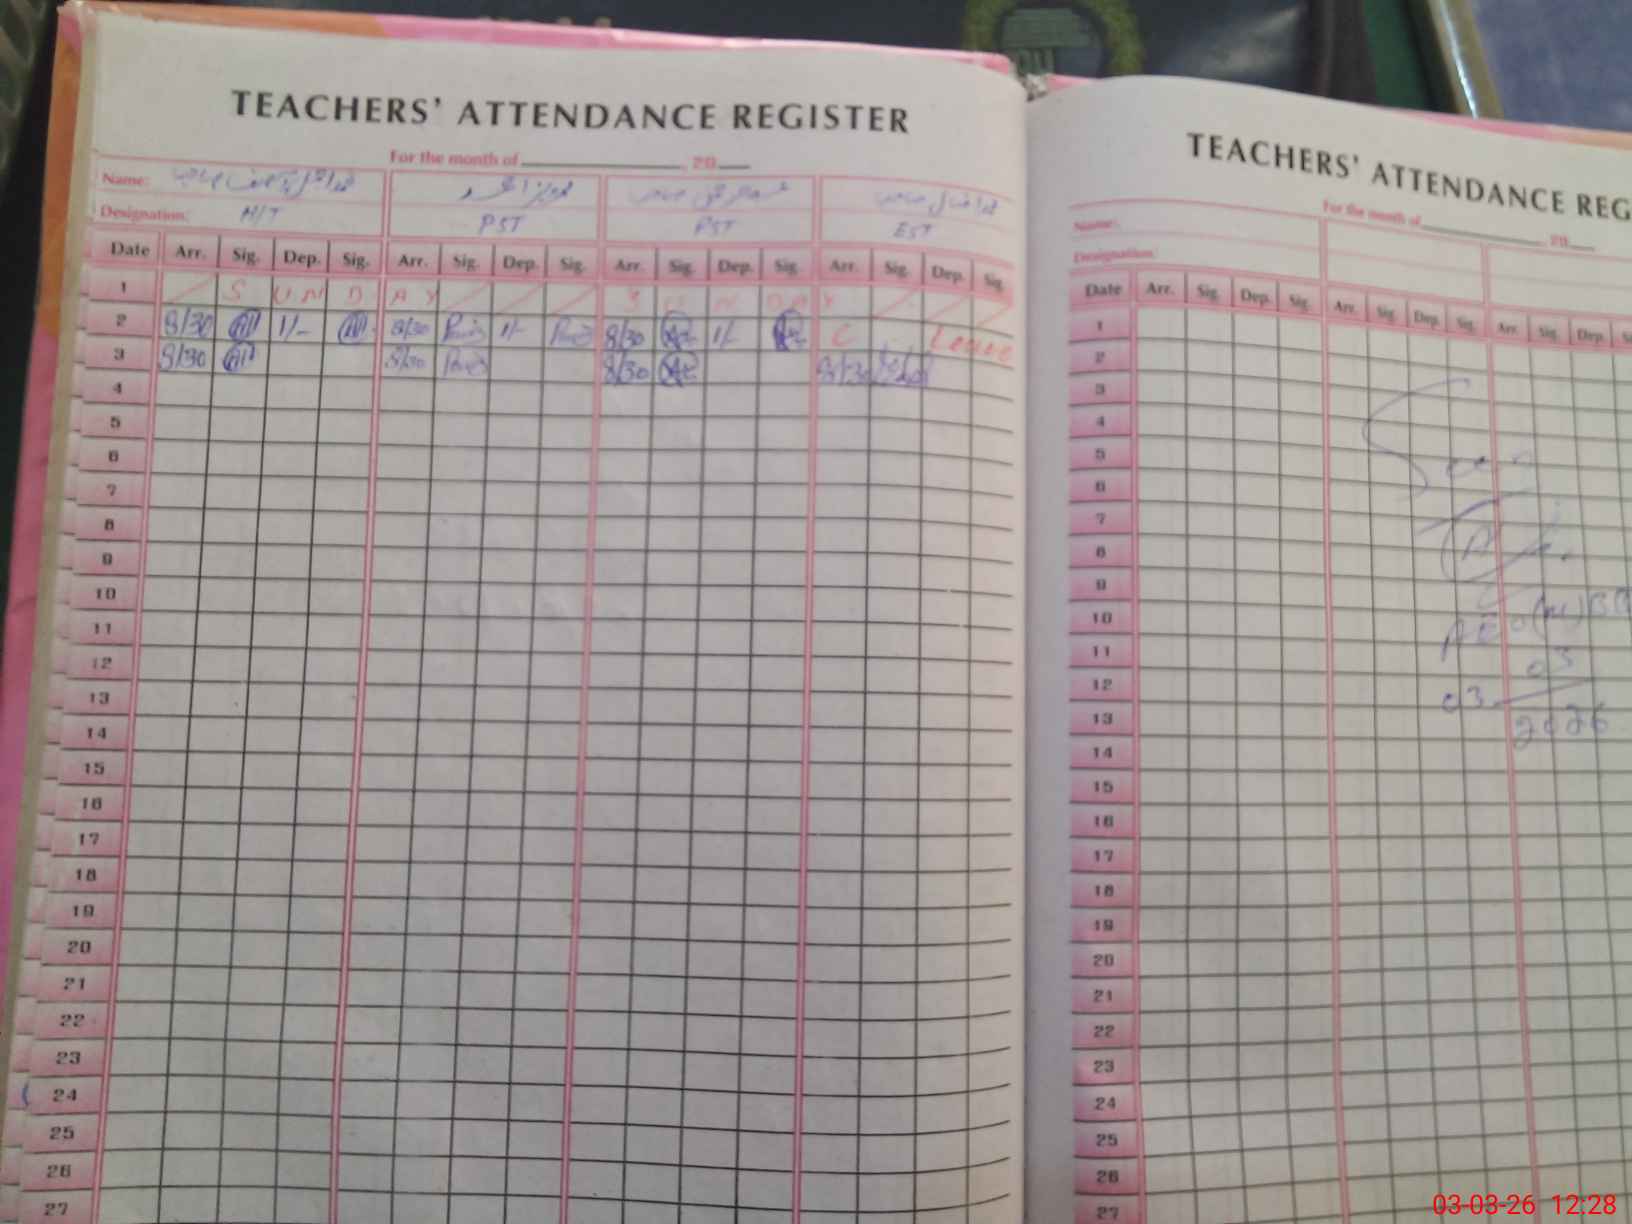 TEACHERS' ATTENDANCE REGISTER
For the month of , 20
Name:
Designation: H/T PST PST EST
Date Arr. Sig. Dep. Sig. Arr. Sig. Dep. Sig. Arr. Sig. Dep. Sig. Arr. Sig. Dep. Sig.
1 S U N D A Y S U N D A Y
2 8/30 1/- 8/30 1/- 8/30 1/- C Leave
3 8/30 8/30 8/30 8/30
4
5
6
7
8
9
10
11
12
13
14
15
16
17
18
19
20
21
22
23
24
25
26
27
TEACHERS' ATTENDANCE REG
For the month of , 20
Name:
Designation:
Date Arr. Sig. Dep. Sig. Arr. Sig. Dep. Sig. Arr. Sig. Dep.
1
2
3
4
5 Seen
6
7
8
9
10
11 AEO(M)
12 03
13 03 2026
14
15
16
17
18
19
20
21
22
23
24
25
26
27
03-03-26 12:28